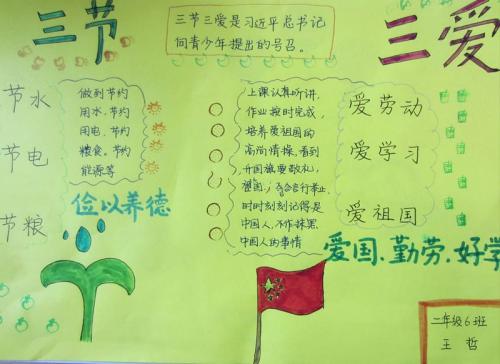 三节
三节三爱是习近平总书记
向青少年提出的号召。
三爱
节水
节电
节粮
做到节约
用水、节约
用电、节约
粮食。节约
能源等
俭以养德
上课认真听讲,
作业按时完成,
培养爱祖国的
高尚情操,看到
升国旗要敬礼,
时时刻刻记得是
中国人,不作抹黑
中国人的事情
爱劳动
爱学习
爱祖国
爱国、勤劳、好学
二年级6班
王哲